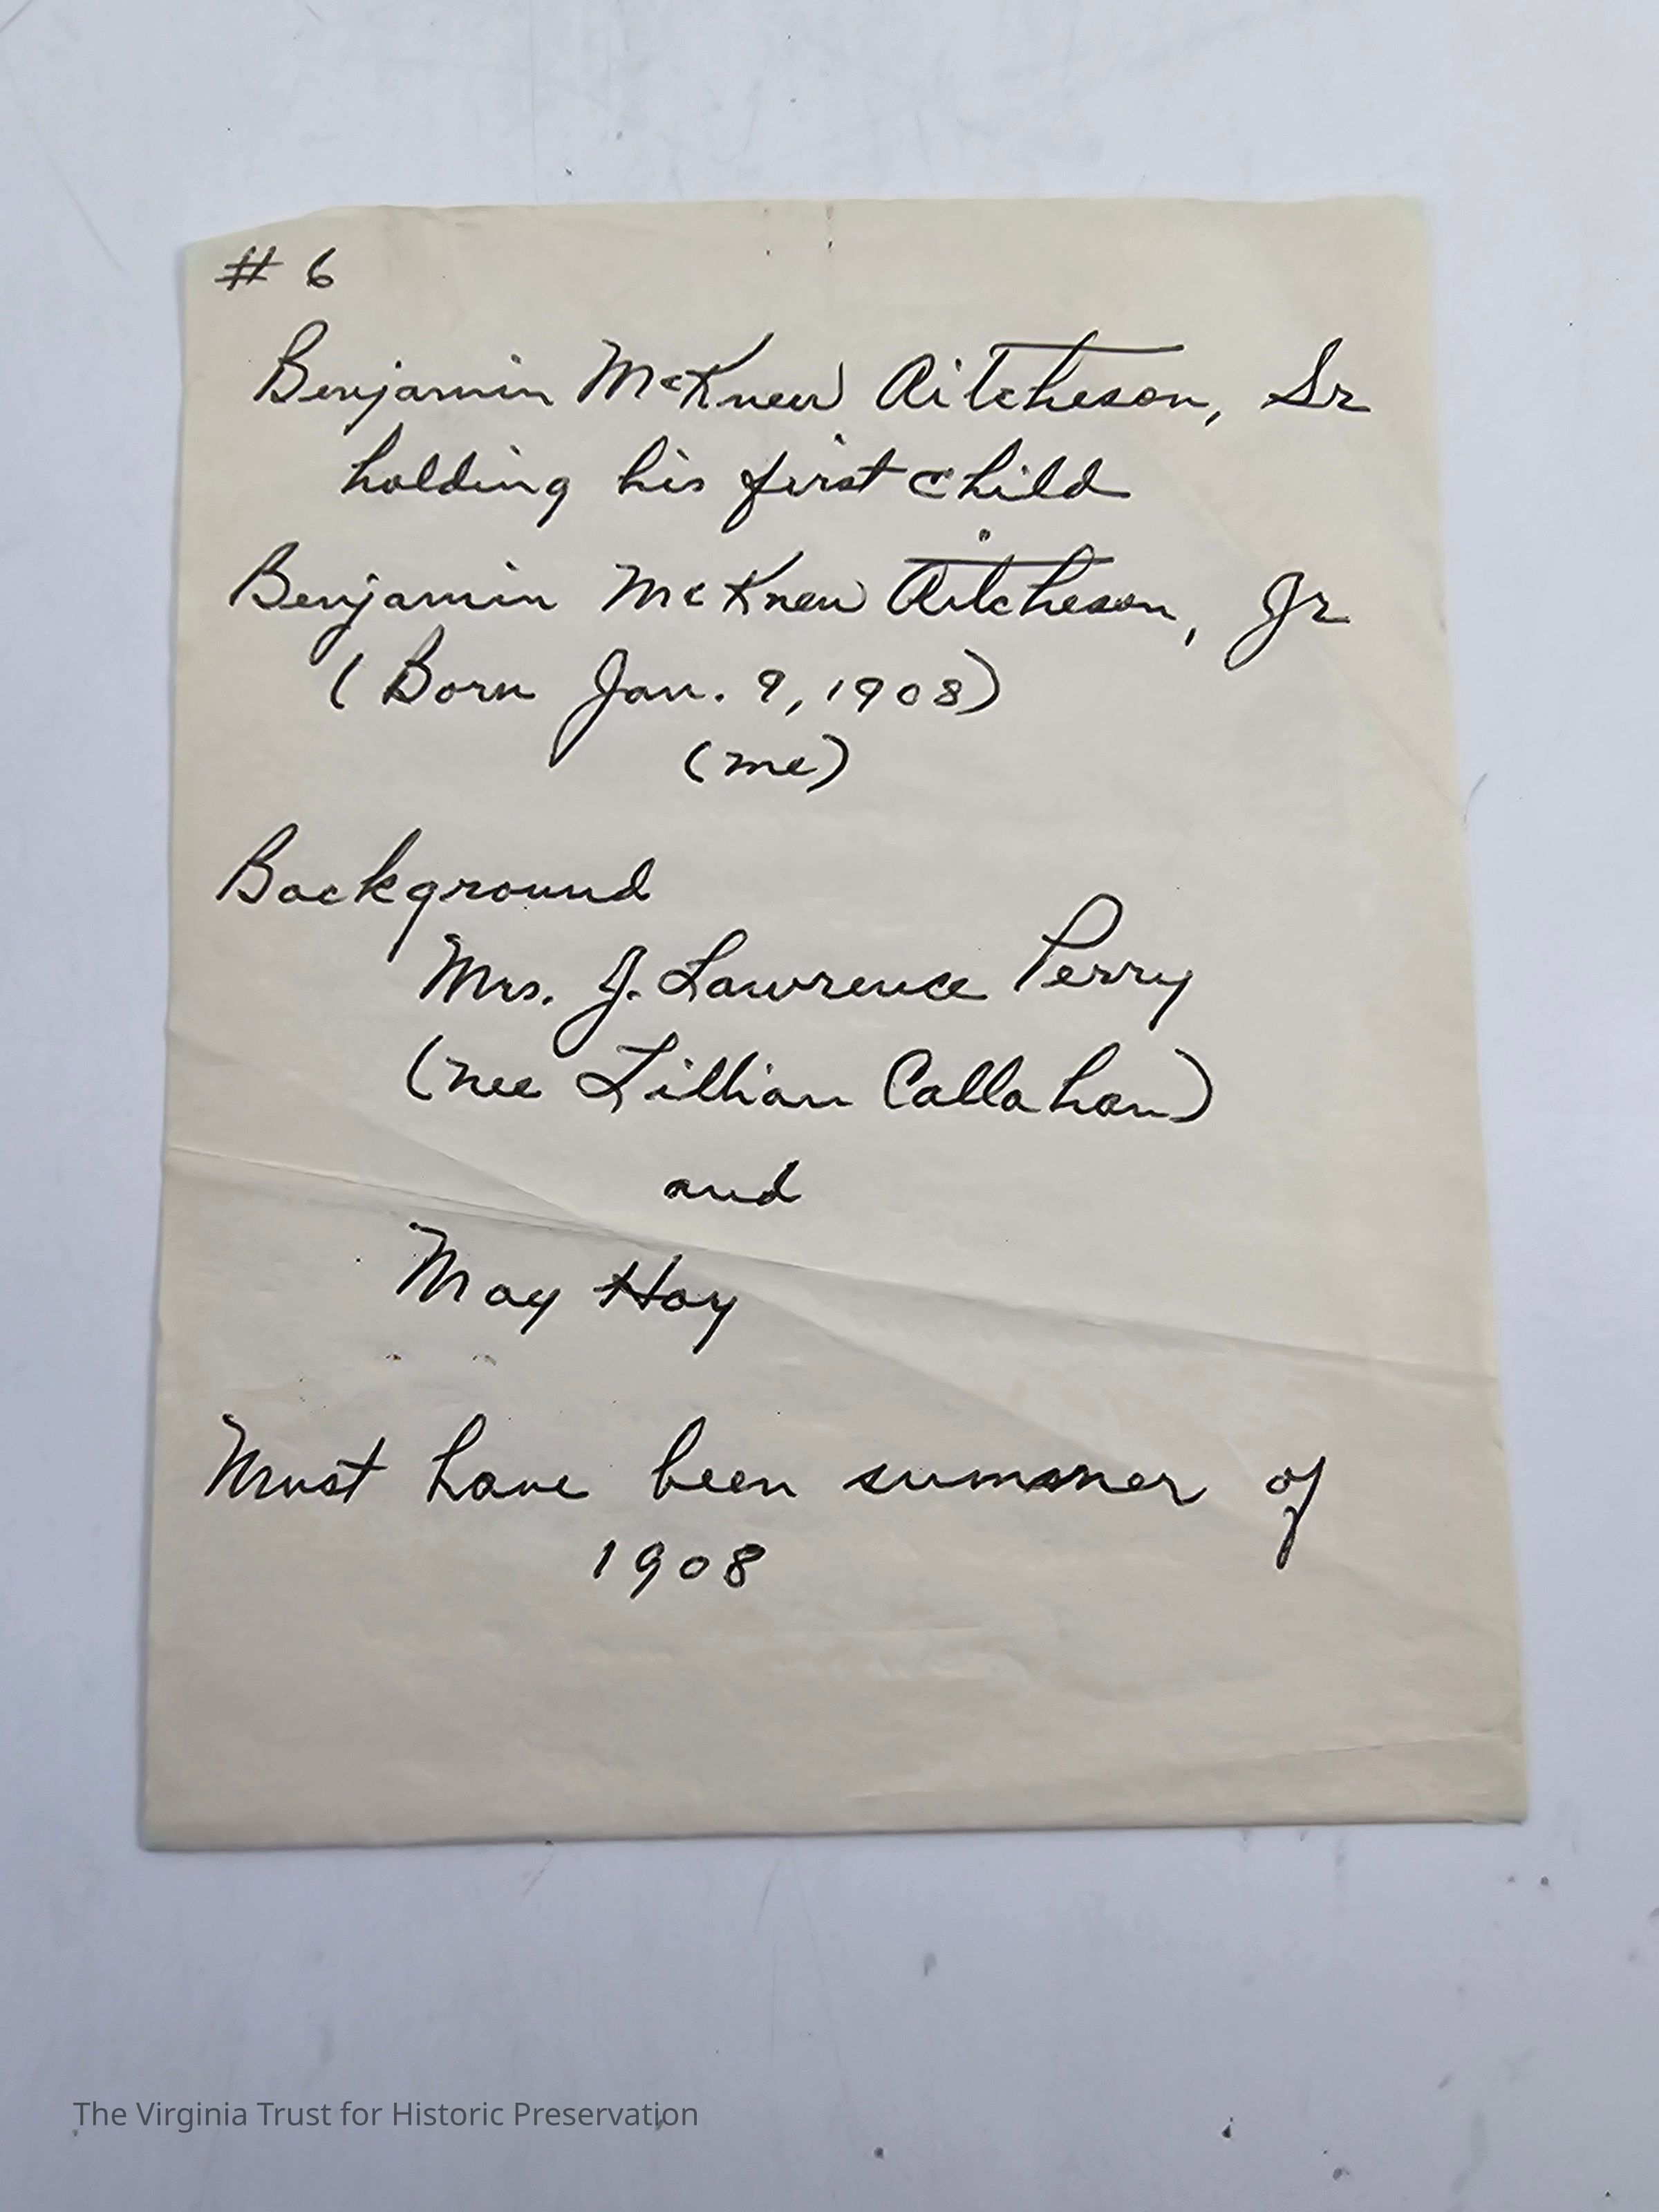 # 6
Benjamin McKnew Aitcheson, Sr
holding his first child
Benjamin McKnew Aitcheson, Jr
(Born Jan. 9, 1908)
(me)
Background
Mrs. J. Lawrence Perry
(nee Lillian Callahan)
and
May Hoy
Must have been summer of
1908
The Virginia Trust for Historic Preservation